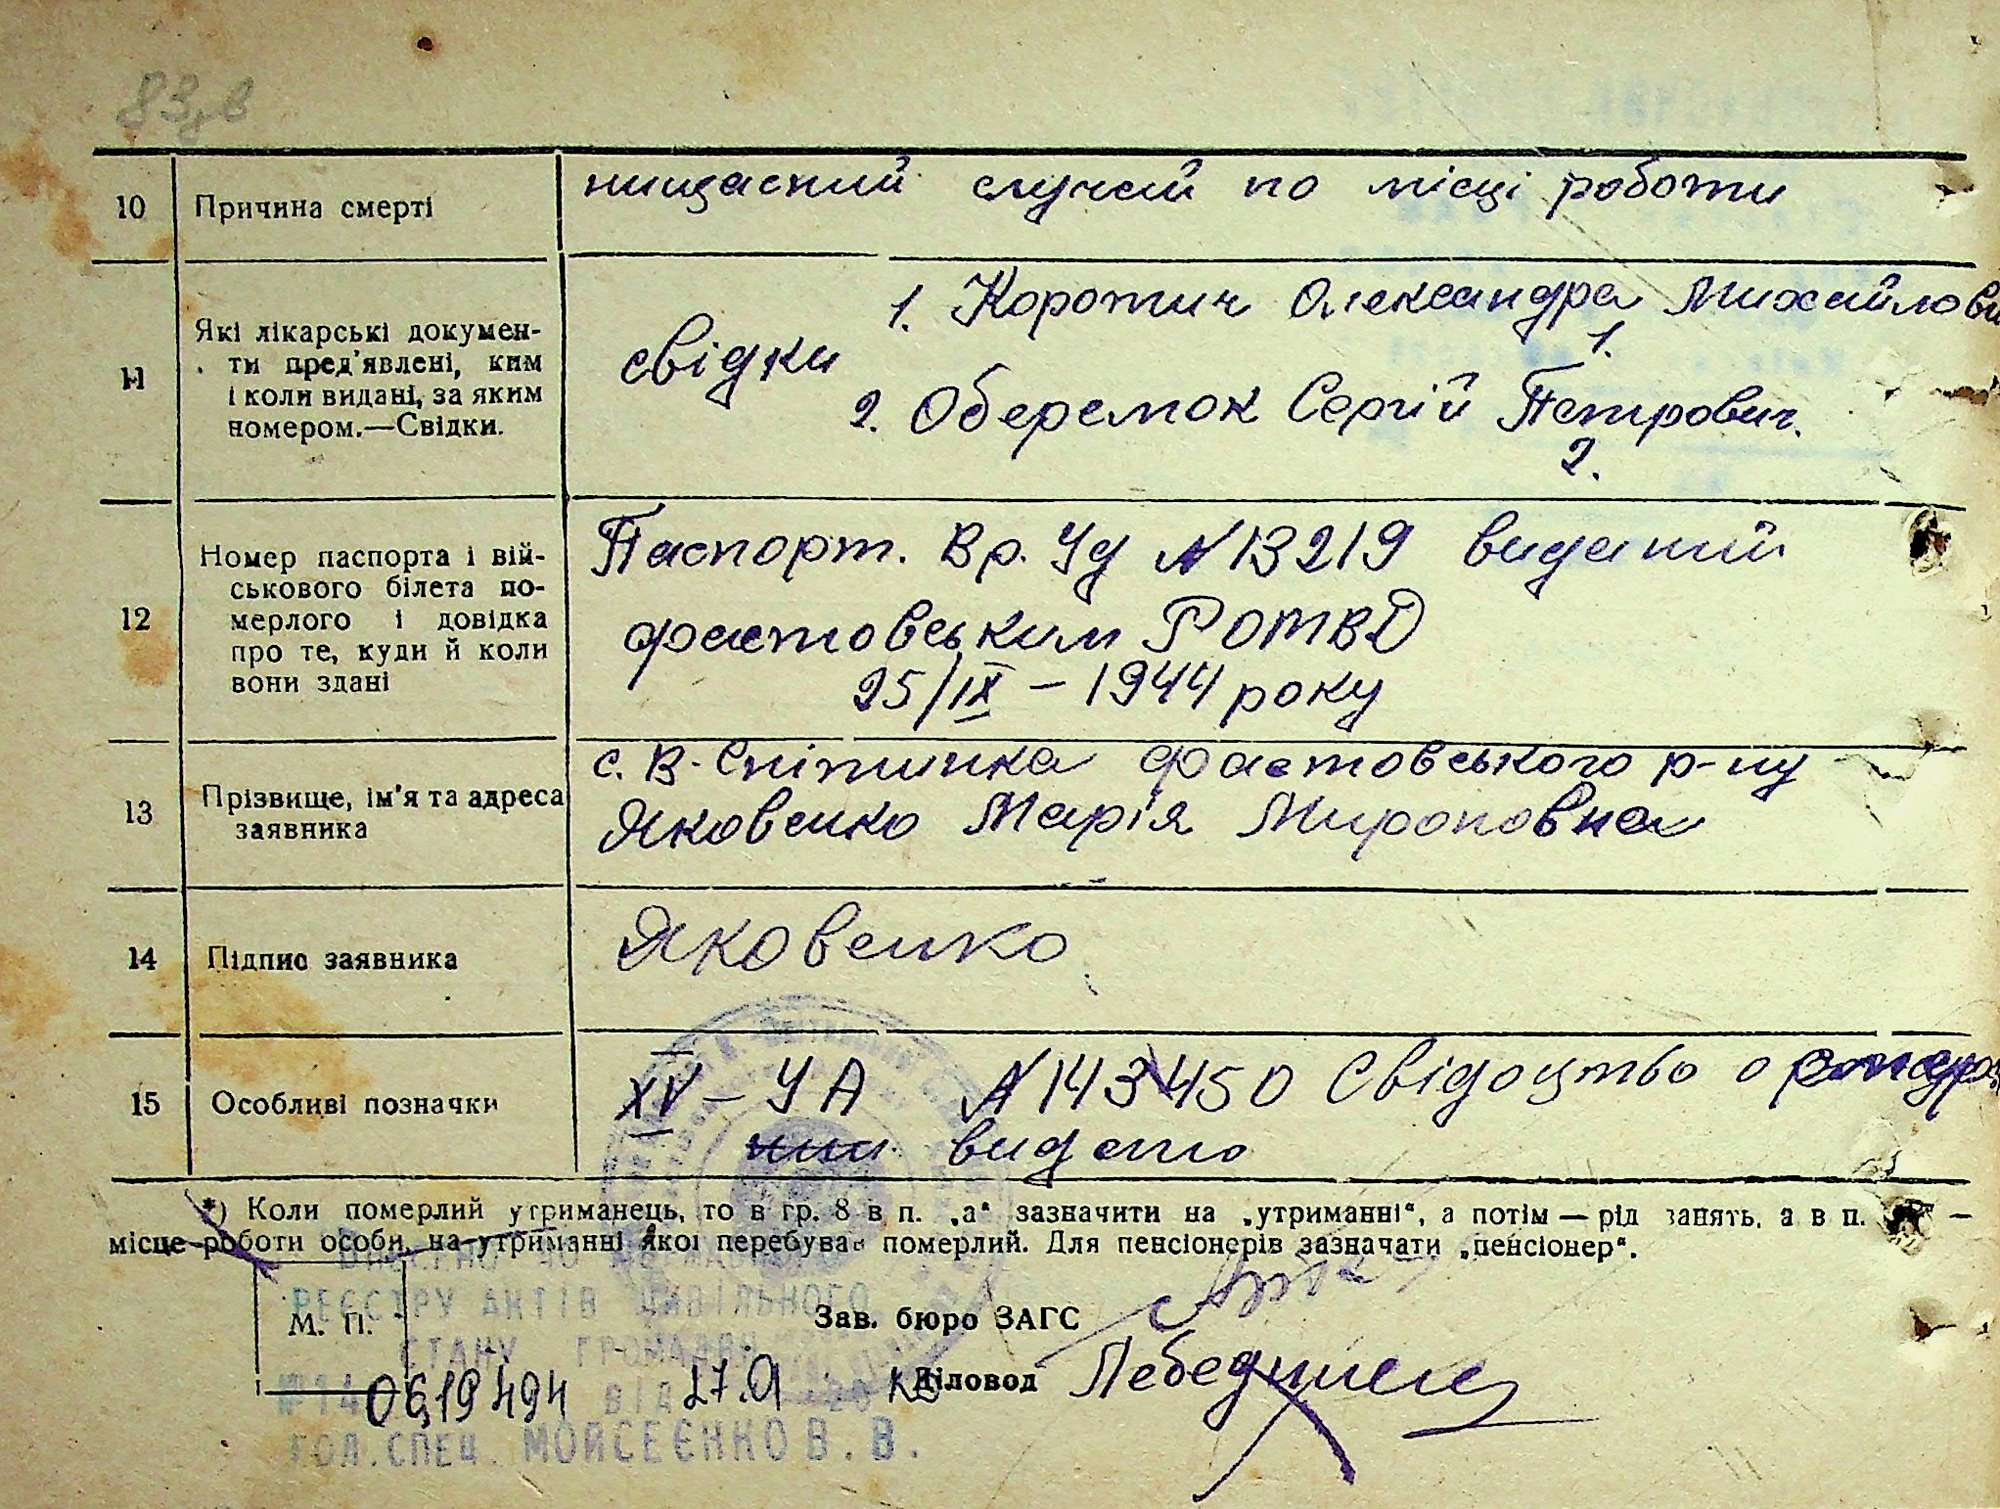 83зв
10 Причина смерті
нищасний случай по місці роботи
11 Які лікарські докумен-
ти пред'явлені, ким
і коли видані, за яким
номером.—Свідки.
свідки
1. Коротич Олександра Михайлови
1.
2. Оберемок Сергій Петрович.
2.
12 Номер паспорта і вій-
ськового білета по-
мерлого і довідка
про те, куди й коли
вони здані
Паспорт. Вр. Уд №13219 виданий
фастовським РОМВД
25/IX – 1944 року
13 Прізвище, ім'я та адреса
заявника
с. В-Снітинка фастовського р-ну
Яковенко Марія Мироновна
14 Підпис заявника
Яковенко
15 Особливі позначки
XV – УА №143450 Свідоцтво о
видано
*) Коли померлий утриманець, то в гр. 8 в п. „а“ зазначити на „утриманні“, а потім — рід занять, а в п. —
місце роботи особи, на утриманні якої перебував померлий. Для пенсіонерів зазначати „пенсіонер“.
РЕЄСТРУ АКТІВ ЦИВІЛЬНОГО
СТАНУ ГРОМАДЯН
М. П.
Зав. бюро ЗАГС
Діловод
№14 0619494 ВІД 27.01
ГОЛ.СПЕЦ. МОЙСЕЄНКО В. В.